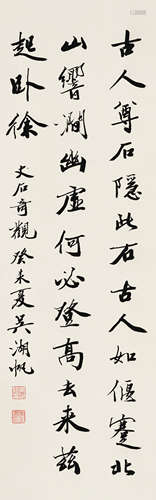 古人尊石隱此石古人如偃蹇北
山響澗幽虛何必登高去来茲
起臥徐
文石奇觀癸未夏吴湖帆